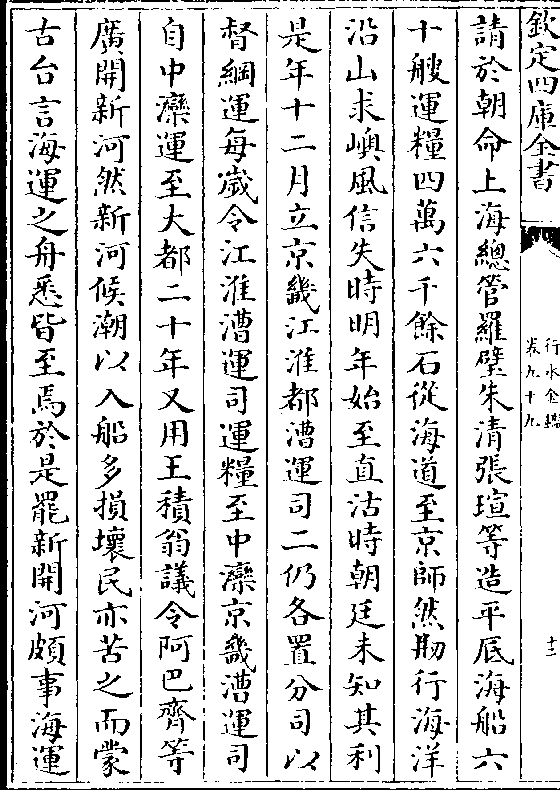 欽定四庫全書
行水金鑑
卷九十九
十二
請於朝命上海總管羅璧朱清張瑄等造平底海船六
十艘運糧四萬六千餘石從海道至京師然刱行海洋
沿山求嶼風信失時明年始至直沽時朝廷未知其利
是年十二月立京畿江淮都漕運司二仍各置分司以
督綱運每歲令江淮漕運司運糧至中灤京畿漕運司
自中灤運至大都二十年又用王積翁議令阿巴齊等
廣開新河然新河候潮以入船多損壞民亦苦之而蒙
古台言海運之舟悉皆至焉於是罷新開河頗事海運